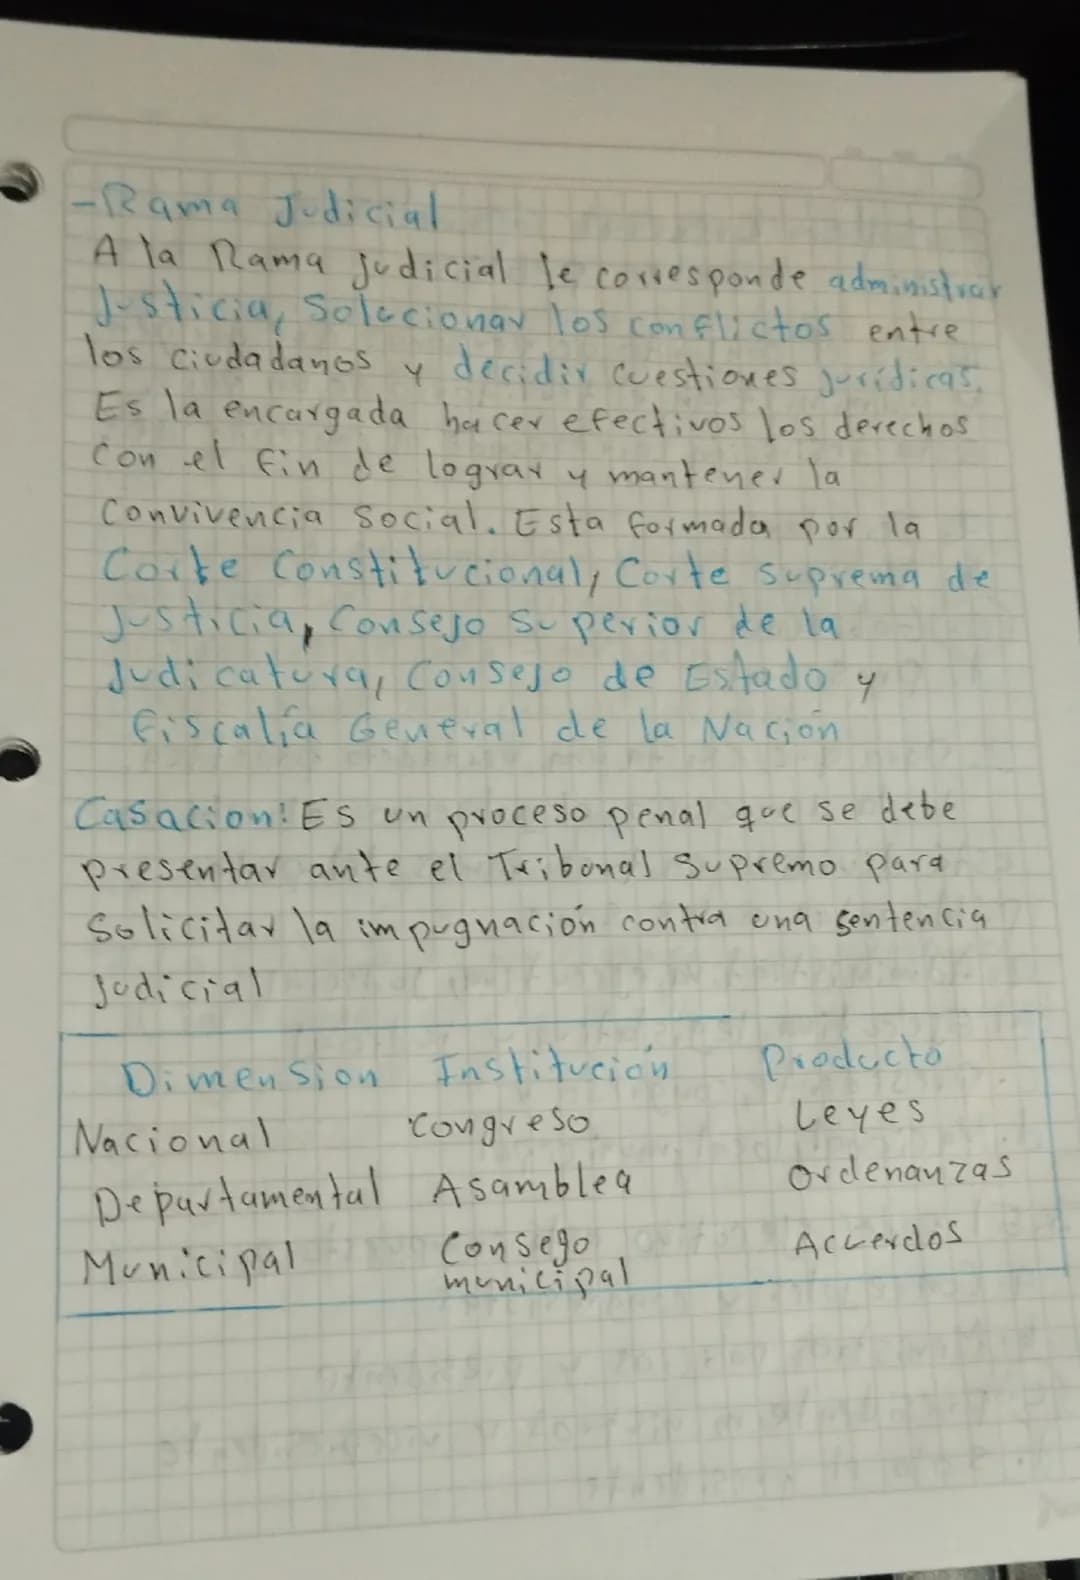 -Rama Judicial
A la Rama judicial le corresponde administrar
Justicia, Solucionar los conflictos entre
los ciudadanos y decidir cuestiones jurídicas.
Es la encargada hacer efectivos los derechos
Con el fin de lograr y mantener la
Convivencia Social. Esta formada por la
Corte Constitucional, Corte suprema de
Justicia, Consejo Superior de la
Judicatura, Consejo de Estado y
fiscalía General de la Nación
Casacion: Es un proceso penal que se debe
presentar ante el Tribunal Supremo para
Solicitar la impugnación contra una sentencia
Judicial
Dimension Institución Producto
Nacional Congreso Leyes
Departamental Asamblea Ordenanzas
Municipal Consego municipal Acuerdos